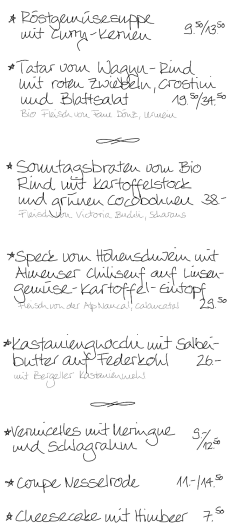 * Röstgemüsesuppe
mit Curry-Kernen 9.50/13.50
* Tatar vom Wagyu-Rind
mit roten Zwiebeln, Crostini
und Blattsalat 19.50/34.50
Bio Fleisch von
* Sonntagsbraten vom Bio
Rind mit Kartoffelstock
und grünen Cocobohnen 38-
Fleisch von Victoria Scharans
* Speck vom Höhenschwein mit
Almenser Chilisenf auf Linsen-
gemüse-Kartoffel-Eintopf
Fleisch von der Alp Calancatal 29.50
* Kastaniengnocchi mit Salbei-
butter auf Federkohl 26.-
mit Bergeller Kastanienmehl
* Vermicelles mit Meringue 9.-/
und Schlagrahm 12.50
* Coupe Nesselrode 11.-/14.50
* Cheesecake mit Himbeer 7.50